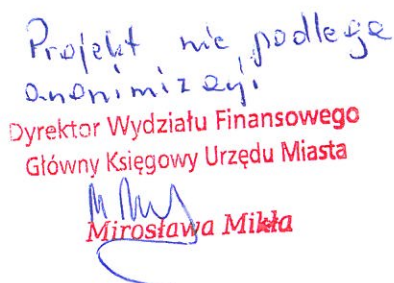 Projekt nie podlega
anonimizacji
Dyrektor Wydziału Finansowego
Główny Księgowy Urzędu Miasta
Mirosława Mikła